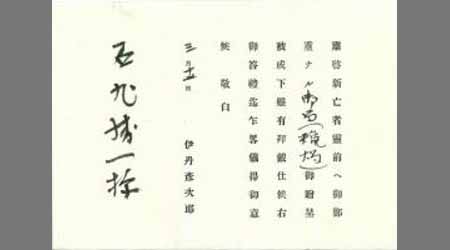 肅啓新亡者靈前へ御鄭
重ナル御御贈呈
被成下難有拜戴仕候右
御答禮迄乍畧儀得御意
候 敬白
三月十五日 伊丹彦次郎
石丸勝一様